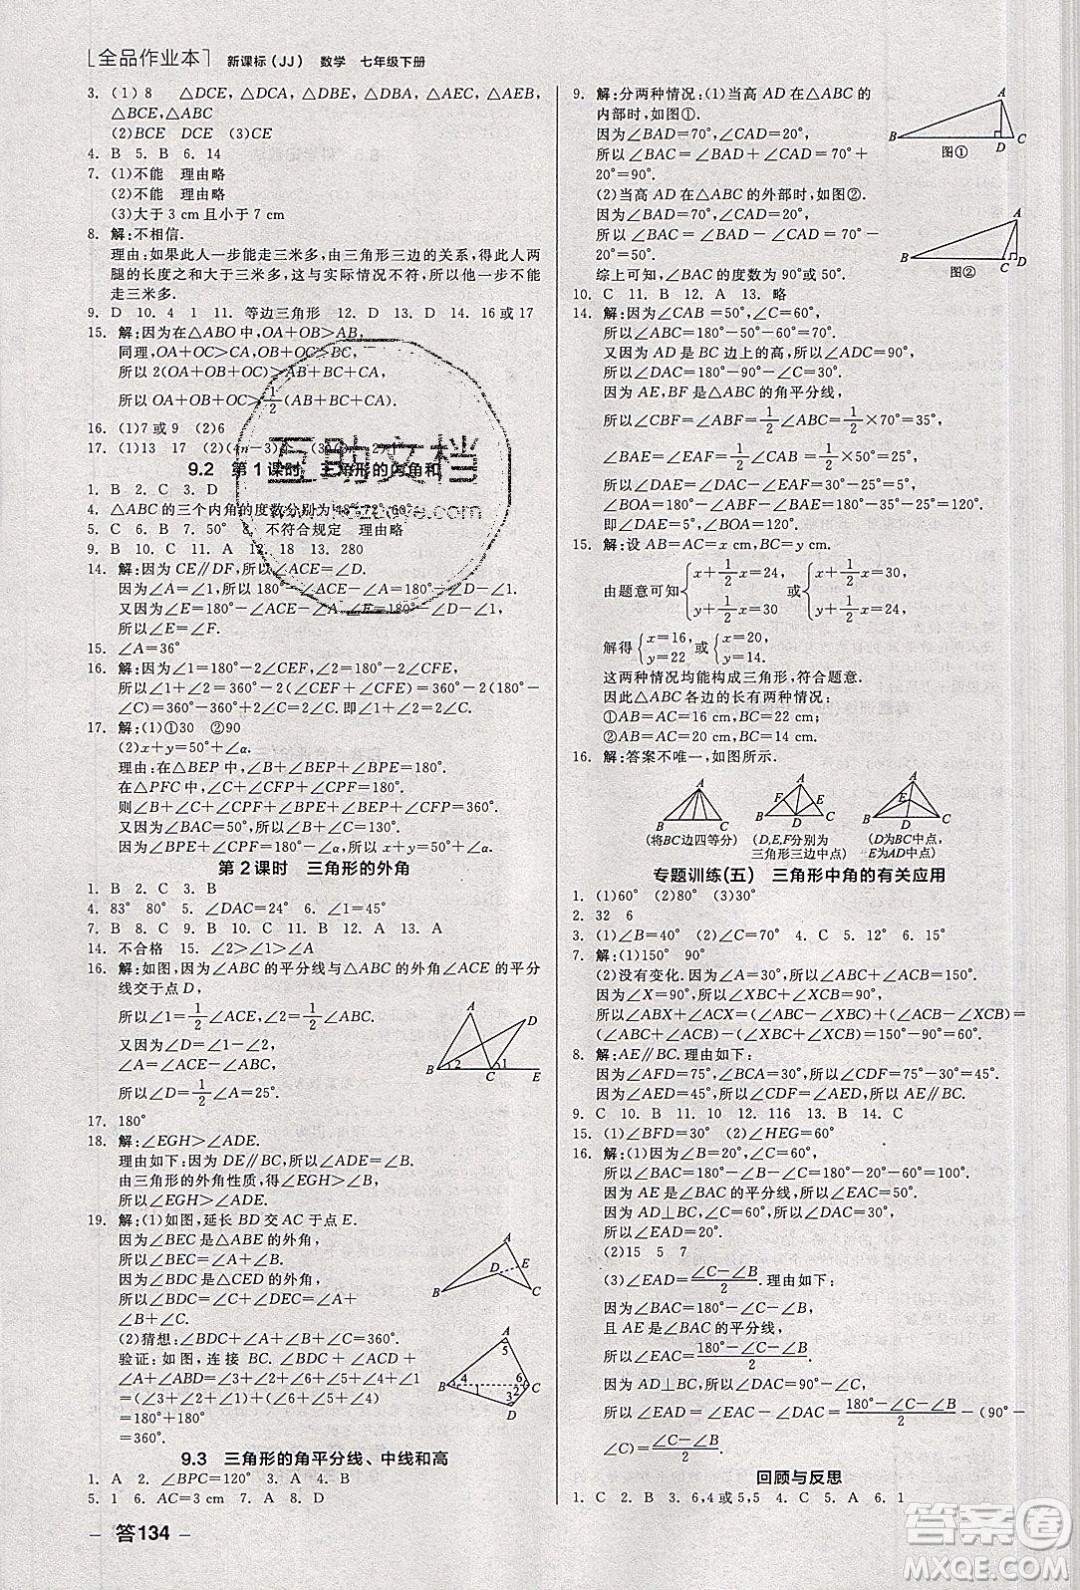 [全品作业本] 新课标(JJ) 数学 七年级下册
3. (1)8 △DCE,△DCA,△DBE,△DBA,△AEC,△AEB,
△BCA,△ABC
(2)BCE DCE (3)CE
4. B 5. B 6. 14
7. (1)不能 理由略
(2)不能 理由略
(3)大于 3 cm 且小于 7 cm
8. 解:不相信.
理由:如果此人一步能走三米多,由三角形三边的关系,得此人两
腿的长度之和大于三米多,这与实际情况不符,所以他一步不能
走三米多.
9. D 10. 4 11. 等边三角形 12. D 13. D 14. 16 或 17
15. 解:因为在△ABO 中,OA+OB>AB,
同理,OA+OC>CA,OB+OC>BC,
所以 2(OA+OB+OC)>AB+BC+CA,
所以 OA+OB+OC>1/2(AB+BC+AC).
16. (1)7 或 9 (2)6
17. (1)13 17 (2)(4n-3)
9.2 第 1 课时 三角形的内角和
1. B 2. C 3. D
4. △ABC 的三个内角的度数分别为 48°,72°,60°
5. C 6. B 7. 50° 8. 不符合规定 理由略
9. B 10. C 11. A 12. 18 13. 280
14. 解:因为 CE∥DF,所以∠ACE=∠D.
因为∠A=∠1,所以 180°-∠ACE-∠A=180°-∠D-∠1.
又因为∠E=180°-∠ACE-∠A,∠F=180°-∠D-∠1,
所以∠E=∠F.
15. ∠A=36°
16. 解:因为∠1=180°-2∠CEF,∠2=180°-2∠CFE,
所以∠1+∠2=360°-2(∠CEF+∠CFE)=360°-2(180°-
∠C)=360°-360°+2∠C=2∠C.即∠1+∠2=2∠C.
17. 解:(1)①30 ②90
(2)x+y=50°+∠α.
理由:在△BEP 中,∠B+∠BEP+∠BPE=180°,
在△PFC 中,∠C+∠CFP+∠CPF=180°,
则∠B+∠C+∠CPF+∠BPE+∠BEP+∠CFP=360°.
又因为∠BAC=50°,所以∠B+∠C=130°.
又因为∠CPF+∠BPE=180°-∠α,所以 x+y=50°+∠α.
第 2 课时 三角形的外角
1. B 2. C 3. B
4. 83° 80° 5. ∠DAC=24° 6. ∠1=30°
7. B 8. B 9. C 10. C 11. B 12. C 13. A
14. 不合格 15. ∠2>∠1>∠A
16. 解:如图,因为∠ABC 的平分线与△ABC 的外角∠ACE 的平分
线交于点 D,
所以∠1=1/2∠ACE,∠2=1/2∠ABC.
又因为∠D=∠1-∠2,
∠A=∠ACE-∠ABC,
所以∠D=1/2∠A.
A D B 2 1 C E
17. 180°
18. 解:∠EGH>∠ADE.
理由如下:因为 DE∥BC,所以∠ADE=∠B.
由三角形的外角性质,得∠EGH>∠B,
所以∠EGH>∠ADE.
19. 解:(1)如图,延长 BD 交 AC 于点 E.
因为∠BEC 是△ABE 的外角,
所以∠BEC=∠A+∠B.
因为∠BDC 是△CED 的外角,
所以∠BDC=∠C+∠DEC=∠C+∠A+
∠B.
A D E B C
(2)猜想:∠BDC+∠C+∠A+∠B=360°.
验证:如图,连接 BC.因为∠BDC+
∠A+∠ABD+∠ACD=∠3+∠2+∠1
+∠5+∠4+∠6=(∠3+∠2+∠1)+
(∠5+∠4+∠6)
=180°+180°
=360°.
A 5 B 4 6 C 1 2 3 D
9.3 三角形的角平分线、中线和高
1. A 2. ∠BPC=120° 3. A 4. C
5. 1 6. AC=3 cm 7. D 8. A
答134
9. 解:分两种情况:(1)当高 AD 在△ABC 的
内部时,如图①.
因为∠BAD=70°,∠CAD=20°,
所以∠BAC=∠BAD+∠CAD=70°+
20°=90°.
A B D C 图①
(2)当高 AD 在△ABC 的外部时,如图②.
因为∠BAD=70°,∠CAD=20°,
所以∠BAC=∠BAD-∠CAD=70°-
20°=50°.
综上可知,∠BAC 的度数为 90°或 50°.
A B C D 图②
10. C 11. B 12. A 13. 略
14. 解:因为∠CAB=50°,∠C=60°,
所以∠ABC=180°-50°-60°=70°.
又因为 AD 是 BC 边上的高,所以∠ADC=90°,
所以∠DAC=180°-90°-∠C=30°.
因为 AE,BF 是△ABC 的角平分线,
所以∠CBF=∠ABF=1/2∠ABC=1/2×70°=35°,
∠BAE=∠EAF=1/2∠CAB=25°,
所以∠DAE=∠DAC-∠EAF=5°,
∠BOA=180°-∠BAE-∠ABF=120°,
即∠DAE=5°,∠BOA=120°.
15. 解:设 AB=AC=x cm,BC=y cm.
由题意可知{x+1/2x=24, y+1/2x=30 或{x+1/2x=30, y+1/2x=24,
解得{x=16, y=22 或{x=20, y=14.
这两种情况均能构成三角形,符合题意.
因此△ABC 各边的长有两种情况:
①AB=AC=16 cm,BC=22 cm;
②AB=AC=20 cm,BC=14 cm.
16. 解:答案不唯一,如图所示.
A B C (将BC边四等分)
A F E B D C (D,E,F分别为三角形三边中点)
A E B D C (D为BC中点,E为AD中点)
专题训练(五) 三角形中角的有关应用
1. (1)60° (2)80° (3)30°
2. 32 6
3. (1)∠B=40° (2)∠C=70° 4. C 5. 12° 6. 15°
7. 解:(1)150° 90°
(2)没有变化.因为∠A=30°,所以∠ABC+∠ACB=150°.
因为∠X=90°,所以∠XBC+∠XCB=90°,
所以∠ABX+∠ACX=(∠ABC-∠XBC)+(∠ACB-∠XCB)=
(∠ABC+∠ACB)-(∠XBC+∠XCB)=150°-90°=60°.
8. 解:AE∥BC.理由如下:
因为∠AFD=75°,∠BAC=30°,所以∠ADE=45°.
因为∠AED=90°,所以∠EAD=45°=∠CDA,所以AE∥BC.
9. C 10. B 11. 10° 12. 116 13. B 14. C
15. (1)∠BFD=30° (2)∠HEG=50°
16. 解:(1)因为∠B=20°,∠C=60°,
所以∠BAC=180°-∠B-∠C=180°-20°-60°=100°.
因为 AE 是∠BAC 的平分线,所以∠EAC=50°.
因为 AD⊥BC,所以∠ADC=90°,所以∠DAC=30°,
所以∠EAD=20°.
(2)15 5 7
(3)∠EAD=(∠C-∠B)/2.理由如下:
因为∠BAC=180°-∠B-∠C,
且 AE 是∠BAC 的平分线,
所以∠EAC=(180°-∠C-∠B)/2.
因为 AD⊥BC,所以∠DAC=90°-∠C,
所以∠EAD=∠EAC-∠DAC=(180°-∠C-∠B)/2-(90°-
∠C)=(∠C-∠B)/2.
回顾与反思
1. C 2. B 3. 6,4或5,5 4. C 5. A 6. 1
互助文档
答案圈
MXQE.COM